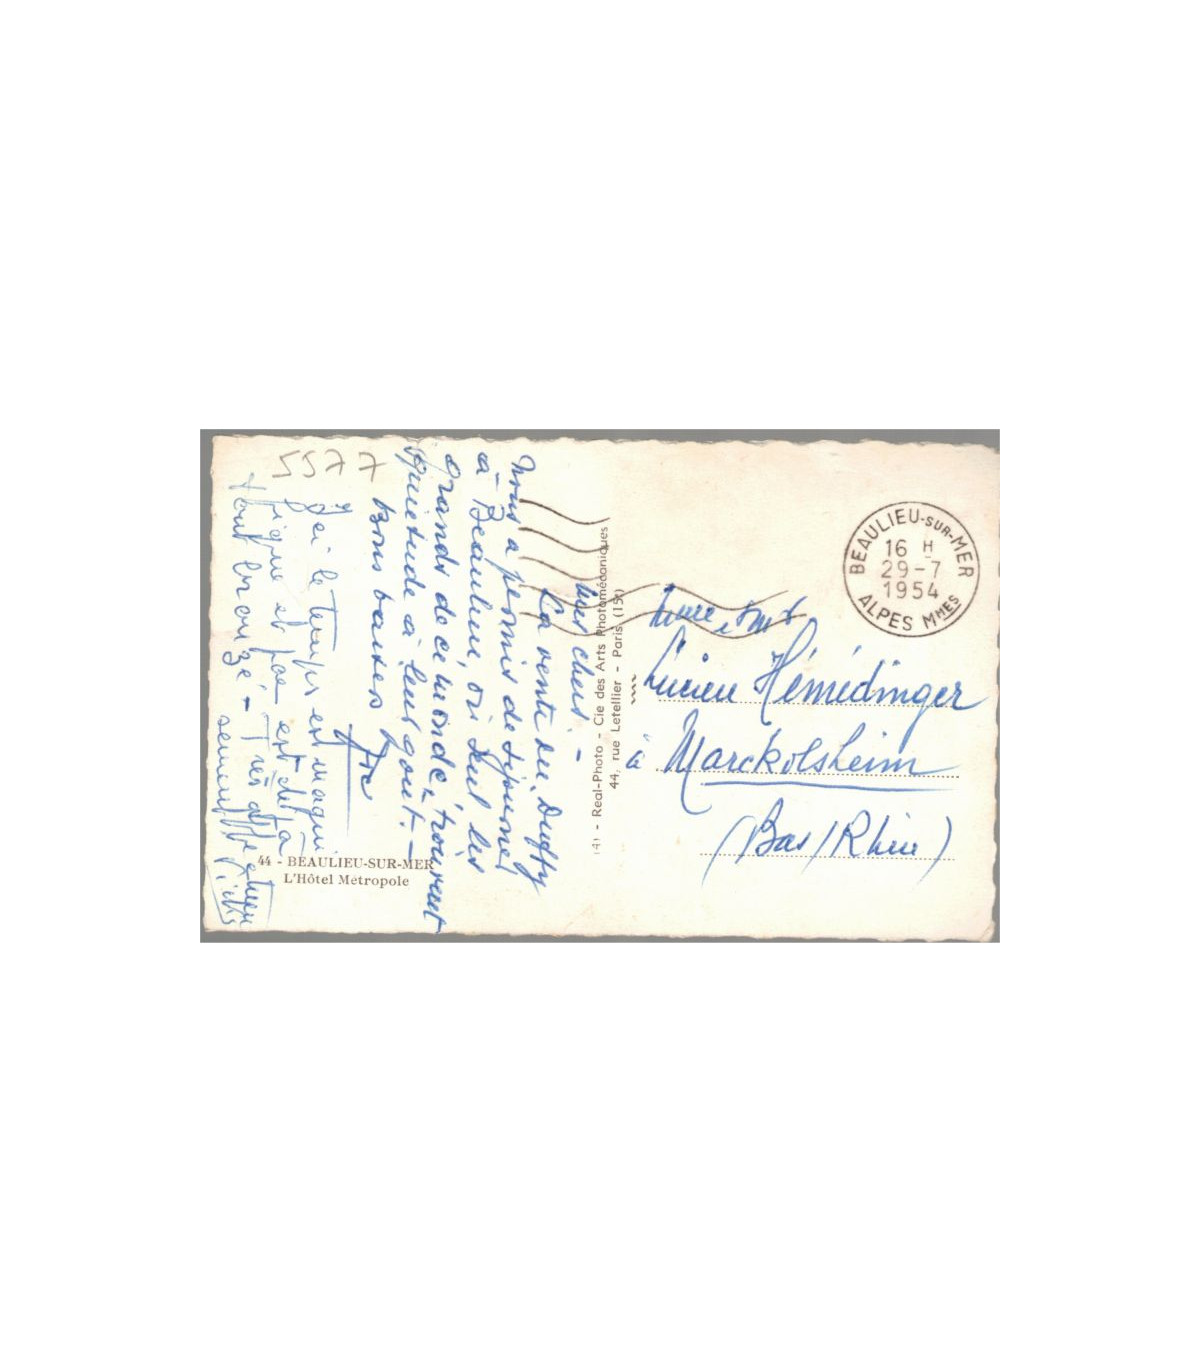 5577
Mes chers -
La vente du Duffy
nous a permis de séjourner
à Beaulieu, où seul les
grands de ce monde, trouvent
quiétude à leur goût. -
Bons baisers
Ici le temps est magni
fique et Joe est déjà
tout bronzé - Très affectueu
sement
44 - BEAULIEU-SUR-MER
L'Hôtel Métropole
(4) - Real-Photo - Cie des Arts Photomécaniques
44, rue Letellier - Paris (15e)
BEAULIEU-SUR-MER
16 H
29-7
1954
ALPES MMES
Lucien Hémédinger
à Marckolsheim
(Bas/Rhin)